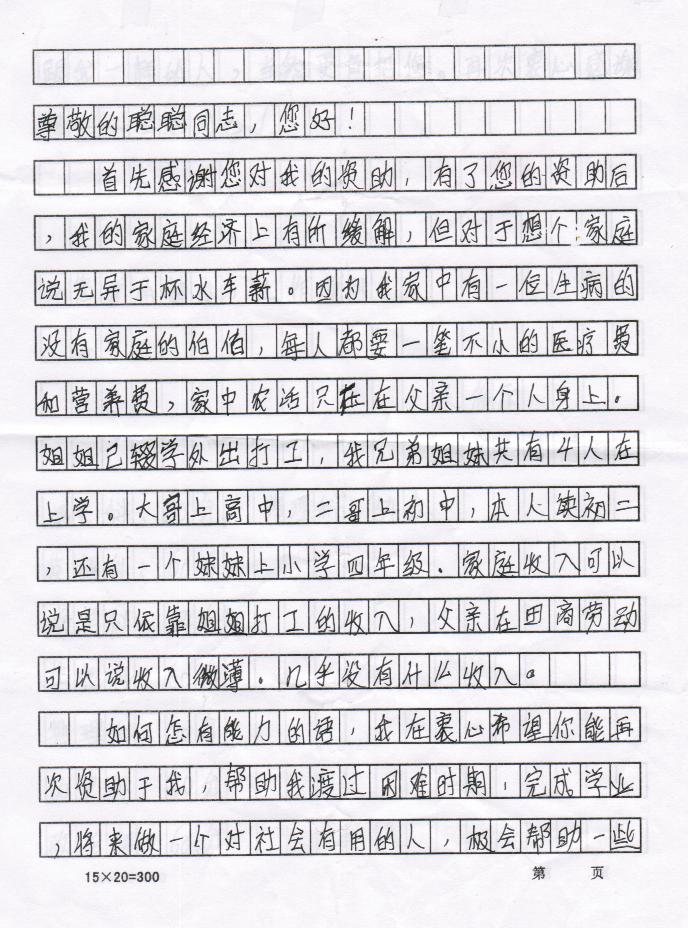 尊敬的聪聪同志，您好！
首先感谢您对我的资助，有了您的资助后
，我的家庭经济上有所缓解，但对于想个家庭
说无异于杯水车薪。因为我家中有一位生病的
没有家庭的伯伯，每人都要一笔不小的医疗费
和营养费，家中农活只在在父亲一个人身上。
姐姐已辍学外出打工，我兄弟姐妹共有4人在
上学。大哥上高中，二哥上初中，本人读初二
，还有一个妹妹上小学四年级．家庭收入可以
说是只依靠姐姐打工的收入，父亲在田商劳动
可以说收入微薄．几乎没有什么收入。
如何怎有能力的话，我在衷心希望你能再
次资助于我，帮助我渡过困难时期，完成学业
，将来做一个对社会有用的人，极会帮助一些
15×20=300 第 页